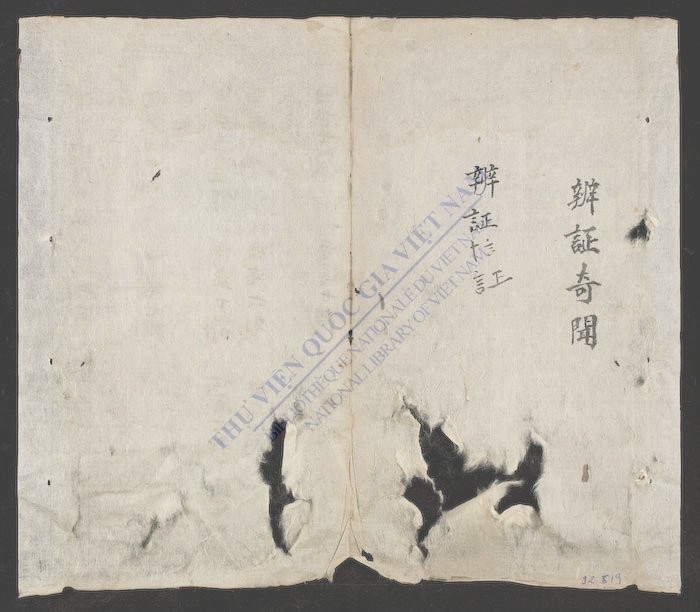 辨証奇聞
辨
証
証
THƯ VIỆN QUỐC GIA VIỆT NAM
BIBLIOTHÈQUE NATIONALE DU VIETNAM
NATIONAL LIBRARY OF VIETNAM